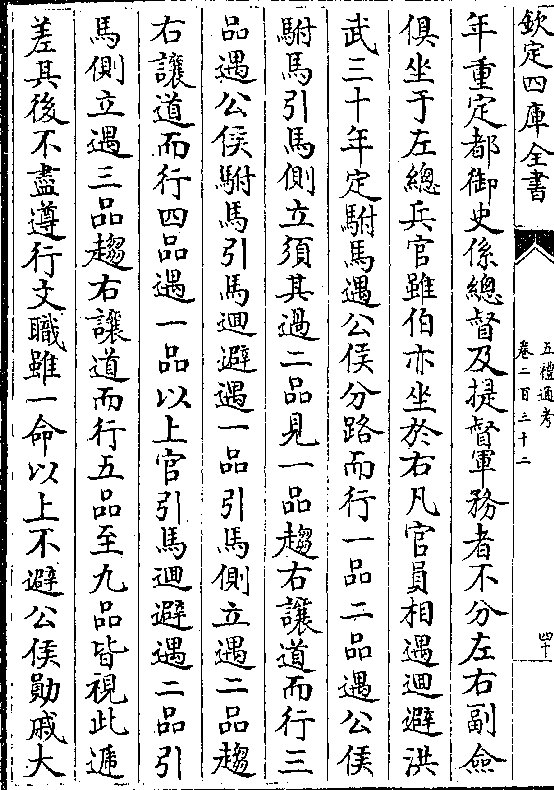 欽定四庫全書
五禮通考
卷二百三十二
四十
年重定都御史係總督及提督軍務者不分左右副僉
俱坐于左總兵官雖伯亦坐於右凡官員相遇迴避洪
武三十年定駙馬遇公侯分路而行一品二品遇公侯
駙馬引馬側立須其過二品見一品趨右讓道而行三
品遇公侯駙馬引馬迴避遇一品引馬側立遇二品趨
右讓道而行四品遇一品以上官引馬迴避遇二品引
馬側立遇三品趨右讓道而行五品至九品皆視此遞
差其後不盡遵行文職雖一命以上不避公侯勛戚大